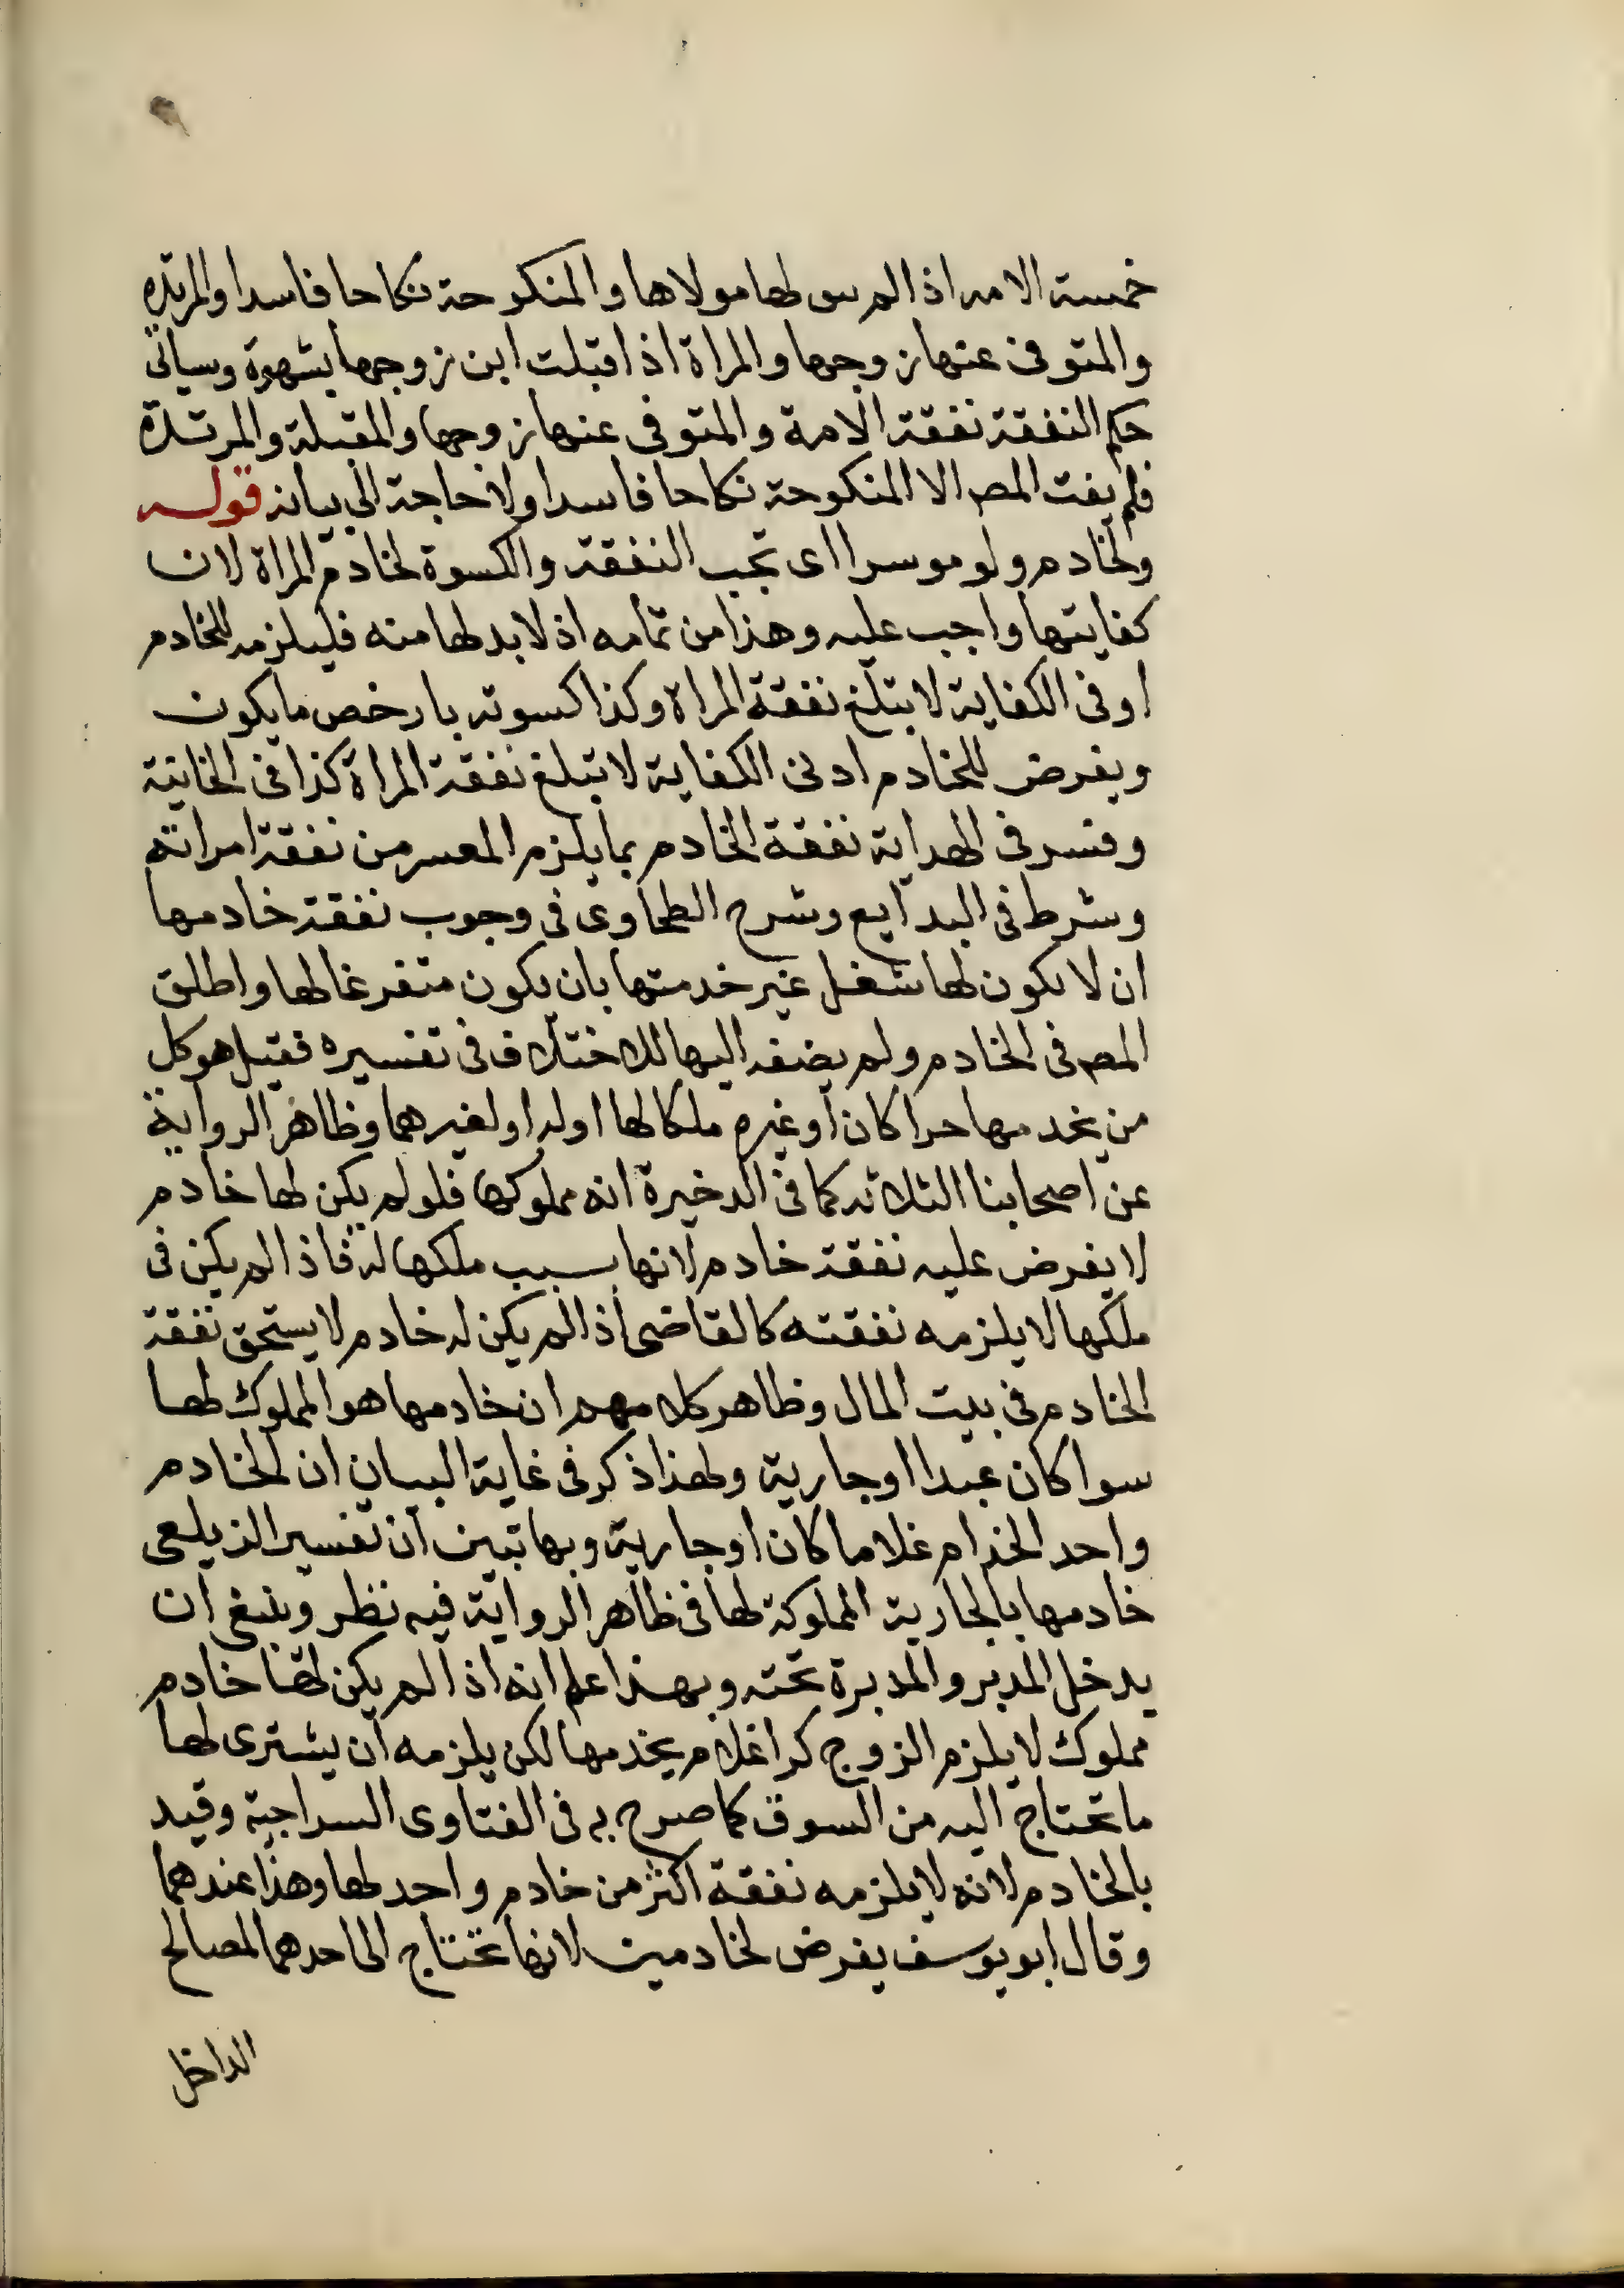 خمسة الامه اذ الم يبو لها مولاها والمنكوحة نكاحا فاسدا والمرتده
والمتوفى عنها زوجها والمراة اذ اقبلت ابن زوجها بشهوة وسياتي
حكم النفقة نفقة الامة والمتوفى عنها زوجها والمقبلة والمرتدة
فلم يفت المص الا المنكوحة نكاحا فاسدا ولا حاجة الى بيانه قوله
ولخادم ولو موسرا اى تجب النفقة والكسوة لخادم المراة لان
كفايتها واجب عليه وهذا من تمامه اذ لابد لها منه فليلزمه للخادم
اوفى الكفاية لا يتبلغ نفقة المراة وكذا كسوته بارخص ما يكون
ويفرض للخادم ادنى الكفاية لا تبلغ نفقة المراة كذا فى الخانية
وفسر فى الهداية نفقة الخادم بما يلزم المعسر من نفقة امراته
وشرط فى البدايع وشرح الطحاوى فى وجوب نفقة خادمها
ان لا يكون لها شغل غير خدمتها بان يكون متفرغا لها واطلق
المص فى الخادم ولم يضفه اليها للاختلاف فى تفسيره فقيل هو كل
من يخدمها حرا كان او غيره ملكا لها اوله او لغيرهما وظاهر الرواية
عن اصحابنا الثلاثه كما فى الدخيرة انه مملوكها فلو لم يكن لها خادم
لا يفرض عليه نفقة خادم لانها بسبب ملكها له فاذ الم يكن فى
ملكها لا يلزمه نفقته كالقاضى اذ الم يكن له خادم لا يستحق نفقة
الخادم فى بيت المال وظاهر كلامهم ان خادمها هو المملوك لها
سوا كان عبدا او جارية ولهذا ذكر فى غاية البيان ان الخادم
واحد الخدام غلاما كان او جارية وبها تبين ان تفسير الزيلعى
خادمها بالجارية المملوكة لها فى ظاهر الرواية فيه نظر وينبغى ان
يدخل المدبر والمدبرة تحته وبهذا علم انه اذ الم يكن لها خادم
مملوك لا يلزم الزوج كرا غلام يخدمها لكن يلزمه ان يشترى لها
ما تحتاج اليه من السوق كما صرح به فى الفتاوى السراجية وقيد
بالخادم لانه لا يلزمه نفقة اكثر من خادم واحد لها وهذا عندهما
وقال ابو يوسف يفرض لخادمين لانها تحتاج الى احدهما لمصالح
الداخل